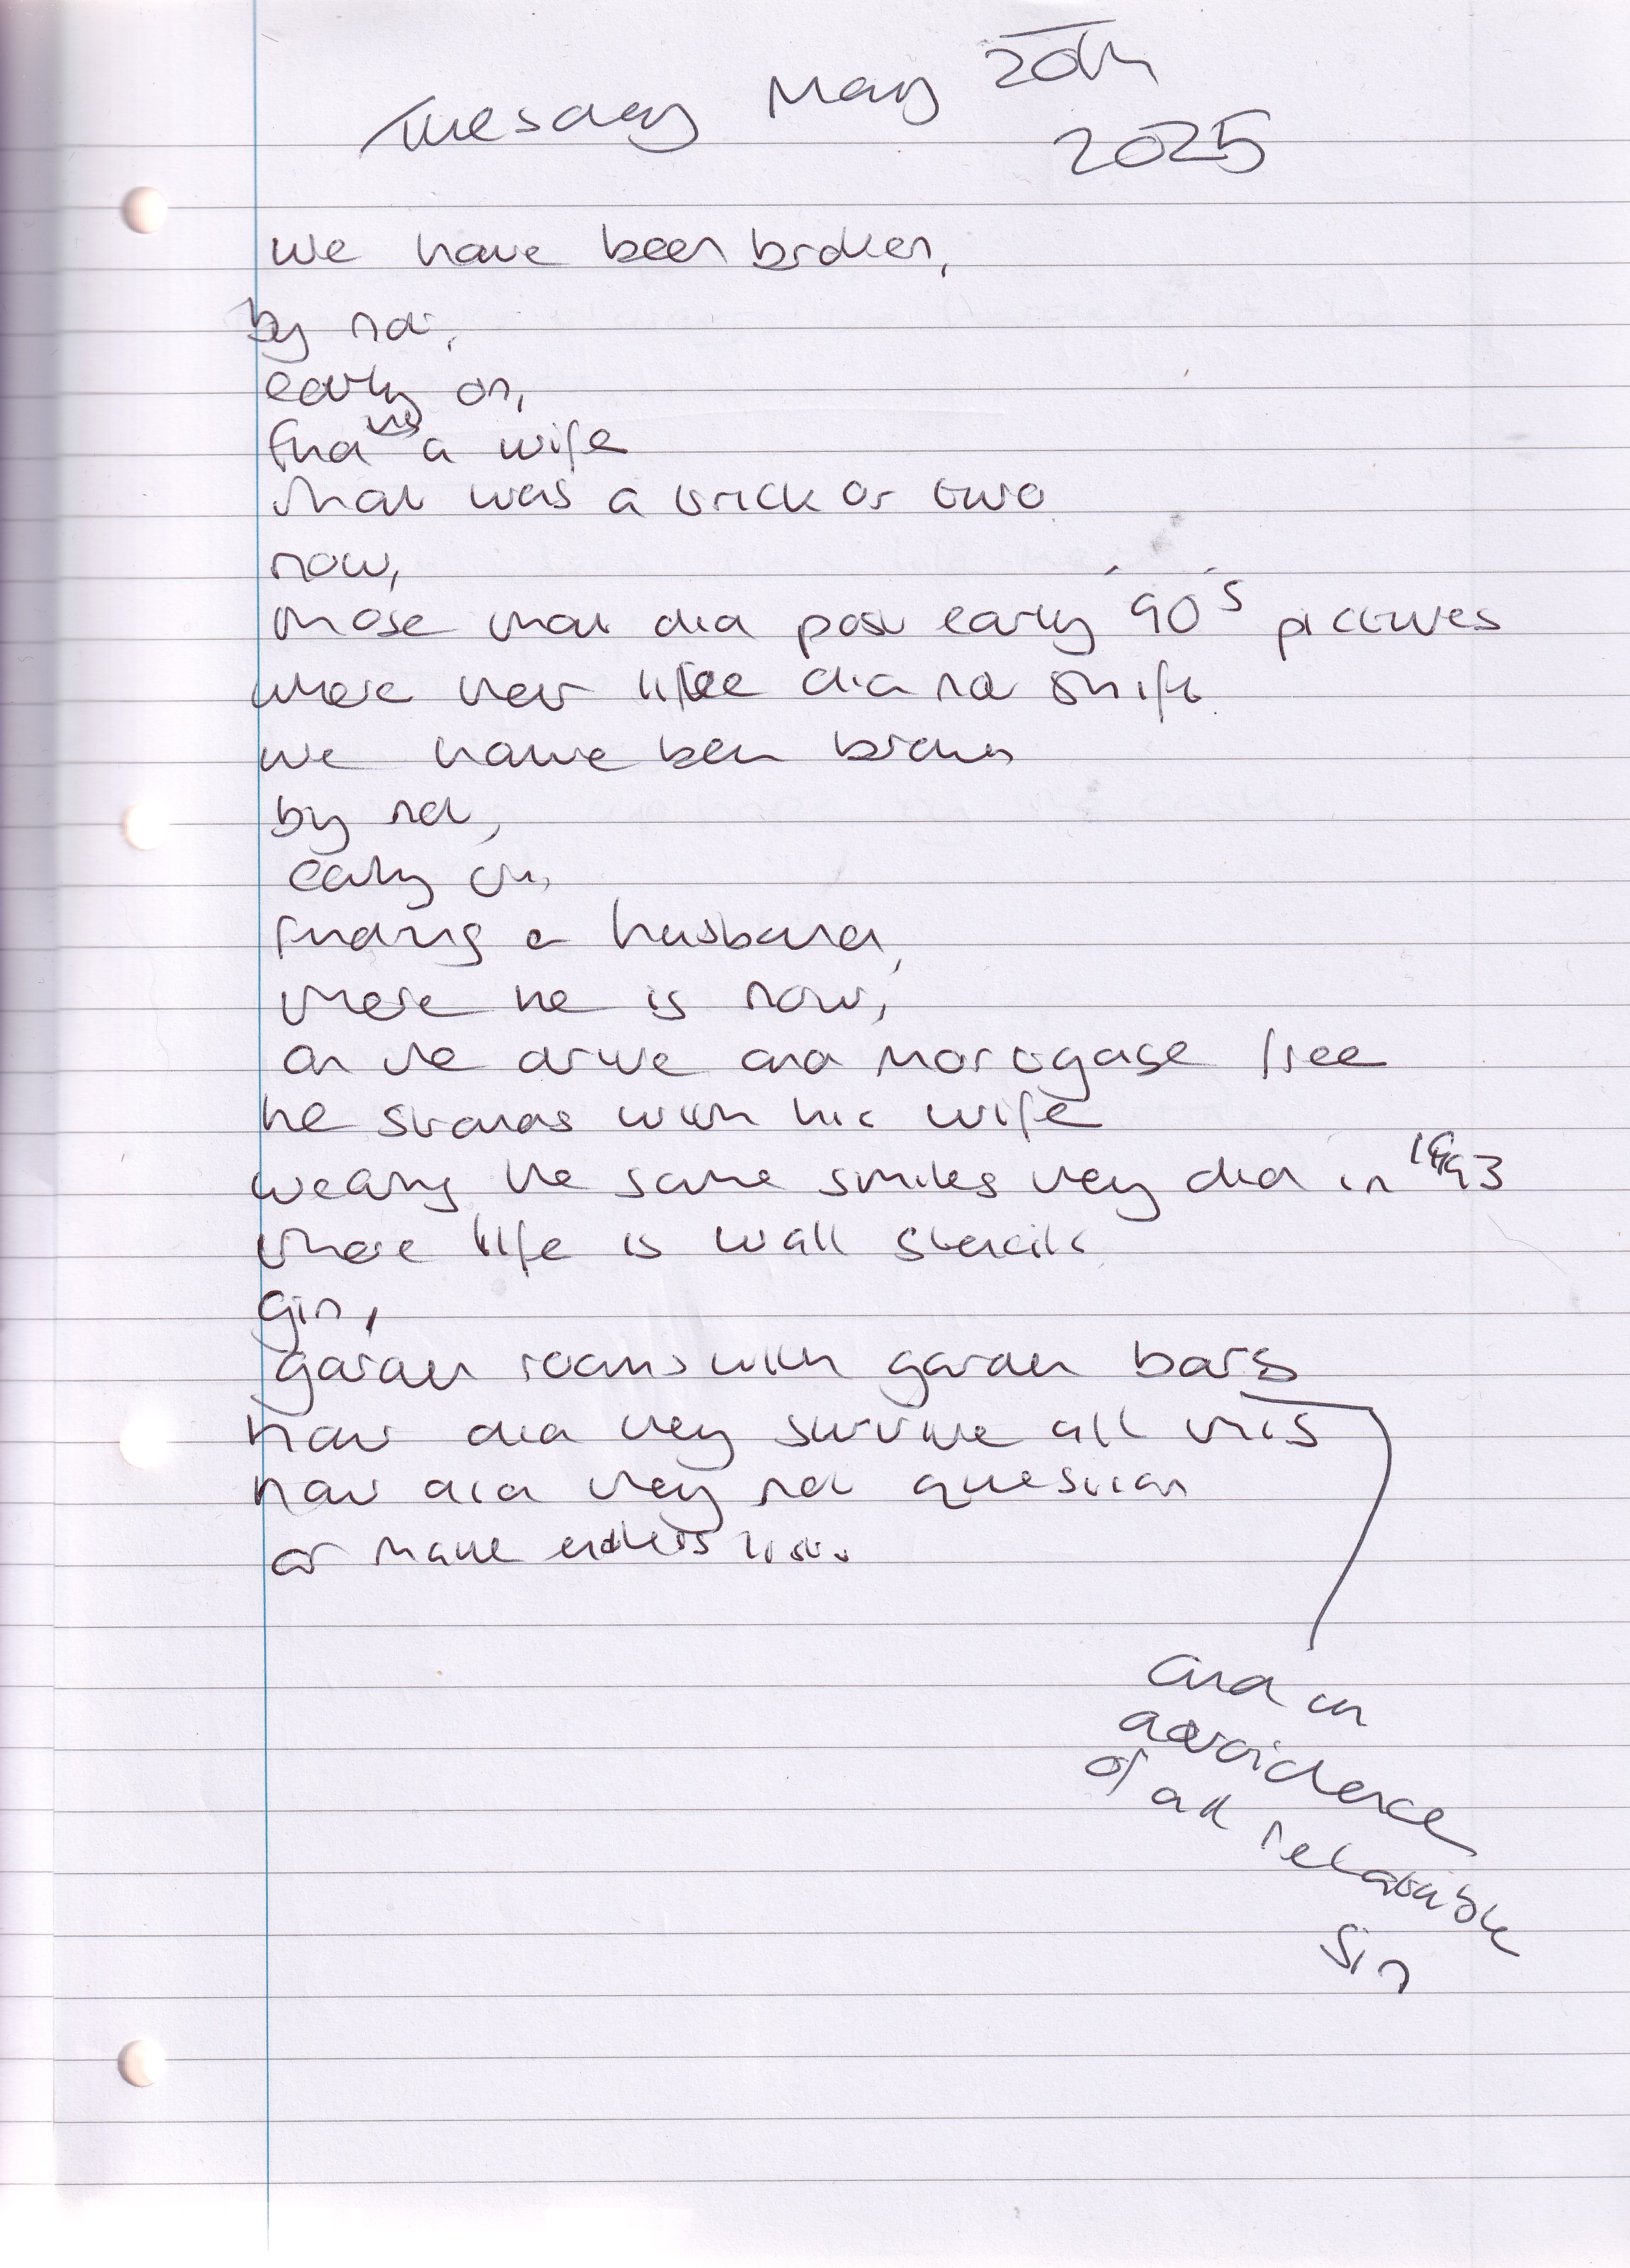 Tuesday May 20th
2025
we have been broken,
by not,
early on,
finding a wife
that was a trick or two
now,
those that did post early 90's pictures
where their life did not shift
we have been broken
by not,
early on,
finding a husband,
there he is now,
on the drive and mortgage free
he stands with his wife
wearing the same smiles they did in 1993
where life is wall stencils
gin,
garden rooms with garden bars
how did they survive all this
how did they not question
or make endless lists.
and in
avoidence
of all relatable
sin